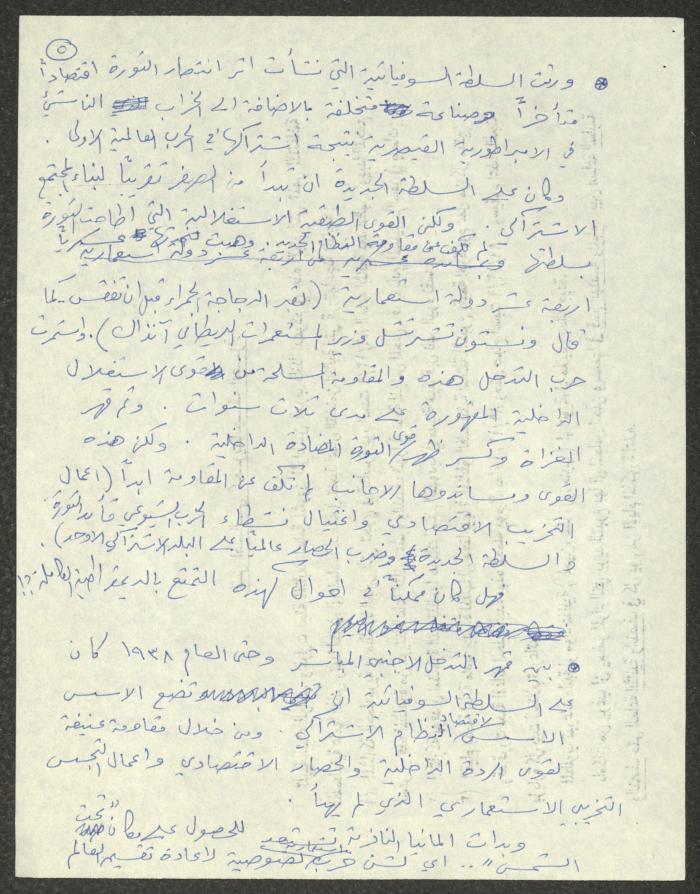 ٥
• ورثت السلطة السوفياتية التي نشأت اثر انتصار الثورة اقتصاداً
متأخراً وصناعة متخلفة بالاضافة الى الخراب الناشئ
في الامبراطورية القيصرية نتيجة اشتراكها في الحرب العالمية الاولى .
وكان على السلطة الجديدة ان تبدأ من الصفر تقريباً لبناء المجتمع
الاشتراكي . ولكن القوى الطبقية الاستغلالية التي اطاحت الثورة
بسلطتها لم تكف عن مقاومة النظام الجديد وهبت لنجدتها عسكرياً
اربعة عشر دولة استعمارية (لقد الدجاجة الحمراء قبل ان تفقس - كما
قال ونستون تشرتشل وزير المستعمرات البريطاني آنذاك) . واستمرت
حرب التدخل هذه والمقاومة المسلحة من قوى الاستغلال
الداخلية المقهورة على مدى ثلاث سنوات . وتم قهر
الغزاة وكسر ظهر قوى الثورة المضادة الداخلية . ولكن هذه
القوى ومساندوها الاجانب لم تكف عن المقاومة ابداً (اعمال
التخريب الاقتصادي واغتيال نشطاء الحزب الشيوعي قائد الثورة
والسلطة الجديدة وضرب الحصار عالمياً على البلد الاشتراكي الاوحد) .
فهل كان ممكناً في احوال كهذه التمتع بالديمقراطية الكاملة ؟!
• بين قهر التدخل الاجنبي المباشر وحتى العام ١٩٣٨ كان
على السلطة السوفياتية ان تضع الاسس
الاسس الاقتصادية للنظام الاشتراكي . ومن خلال مقاومة عنيفة
لقوى الردة الداخلية والحصار الاقتصادي واعمال التجسس
التخريبي الاستعماري الذي لم يهدأ .
وبدأت المانيا النازية تستعد للحصول على مكان "تحت
الشمس" .. اي لشن حرب لصوصية لاعادة تقسيم العالم